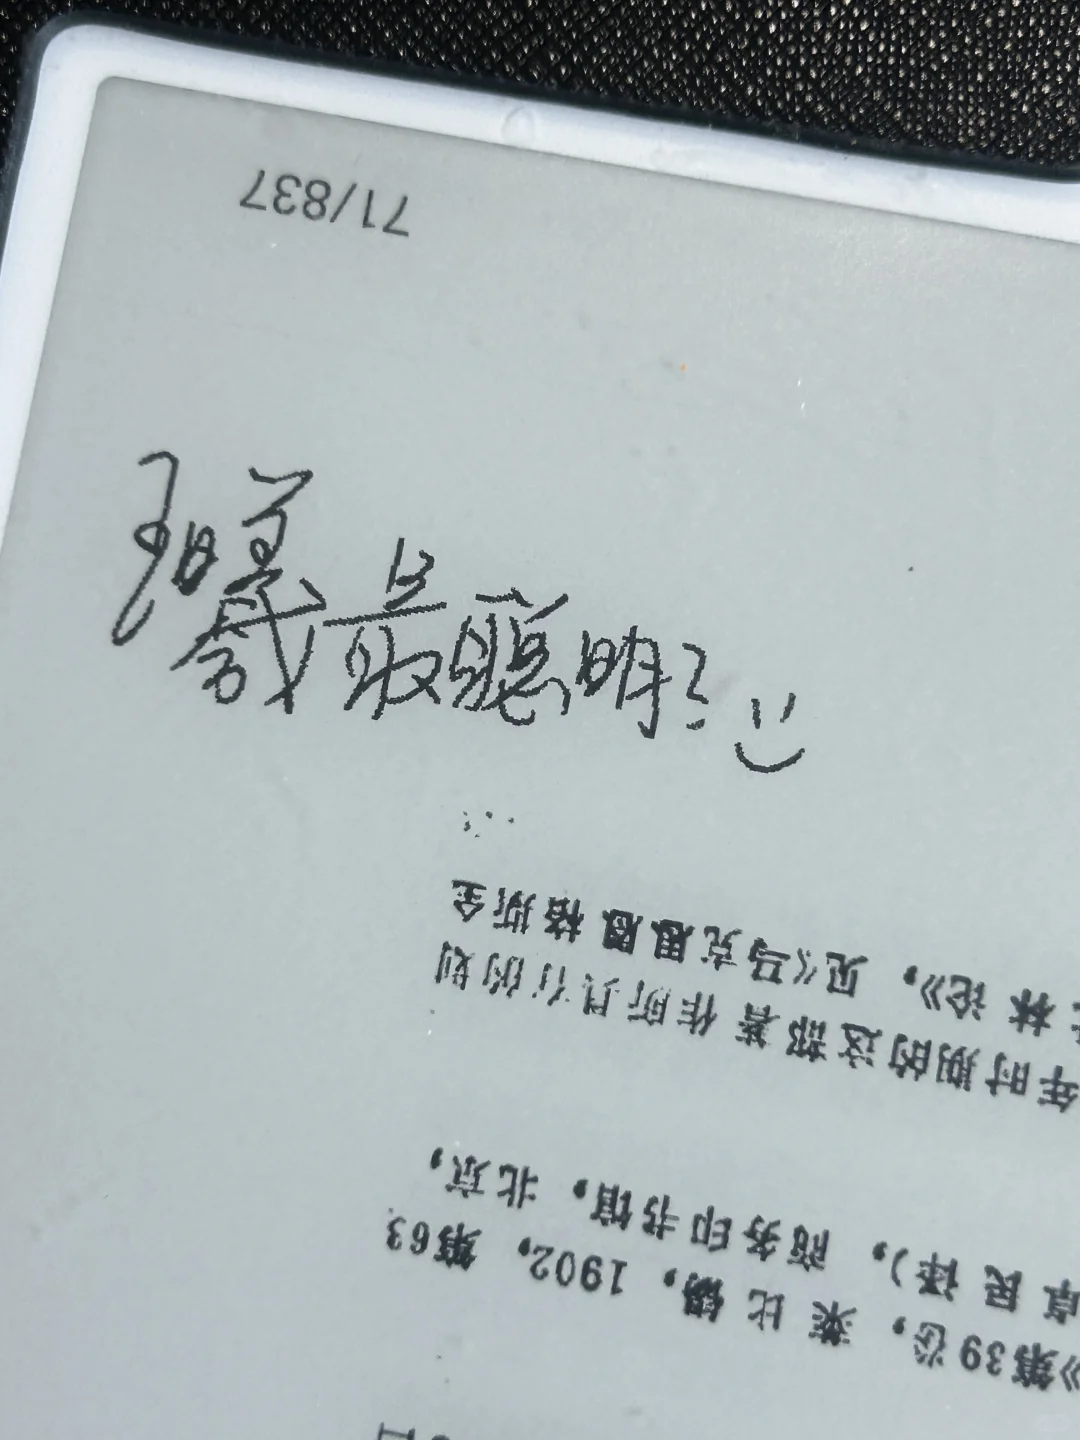 子曦最聪明?
》第39卷，莱比锡，1902，第63
卓民译)，商务印书馆，北京，
年时期的这部著作所具有的划
林论》，见《马克思恩格斯全
71/837